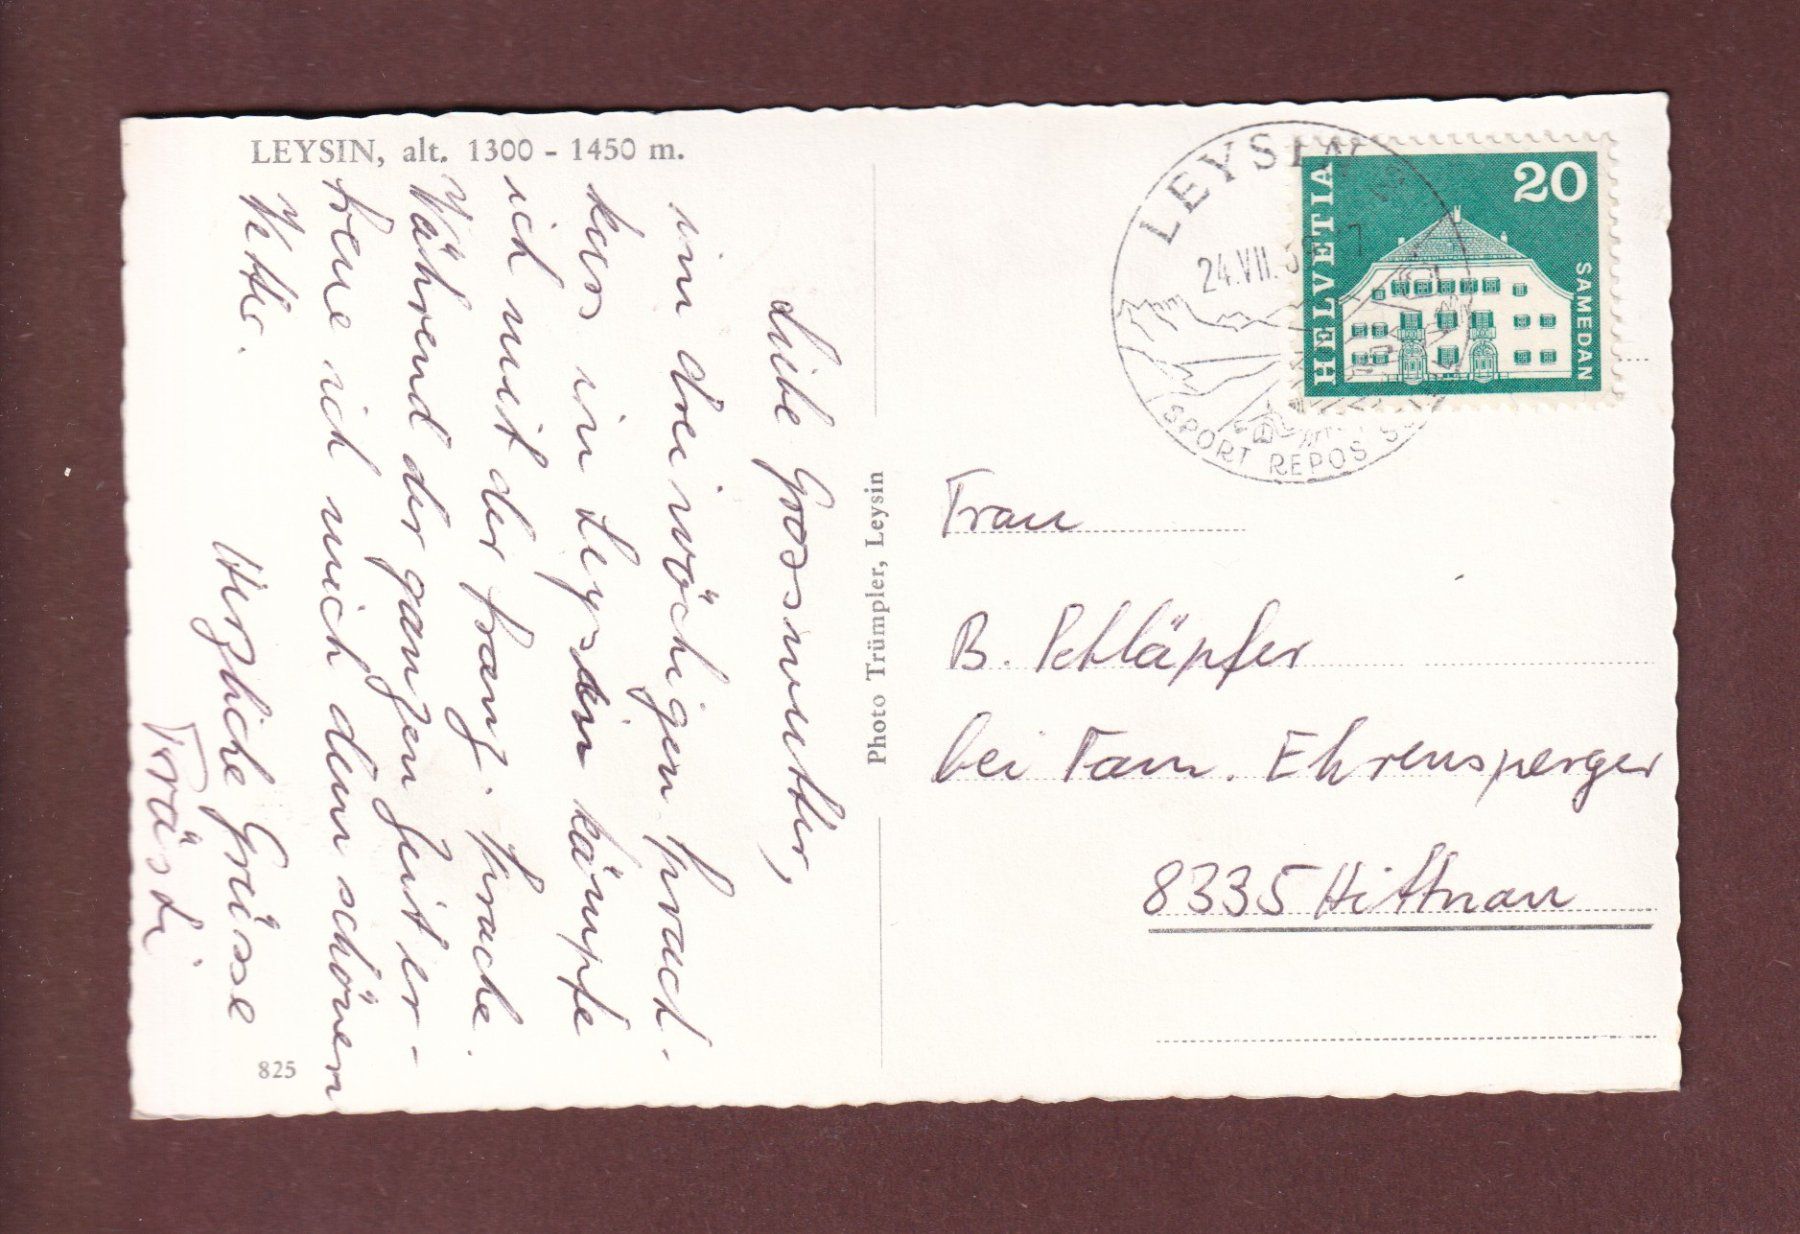 LEYSIN, alt. 1300 - 1450 m.
Liebe Grossmutter,
im drei wöchigen Sprach-
kurs in Leysin kämpfe
ich mit der franz. Sprache.
Während der ganzen Zeit er-
freue ich mich dem schönen
Wetter.
Herzliche Grüsse
825
Photo Trümpler, Leysin
LEYSIN
24.VII.
SPORT REPOS
HELVETIA
20
SAMEDAN
Frau
B. Schläpfer
bei Fam. Ehrensperger
8335 Hittnau